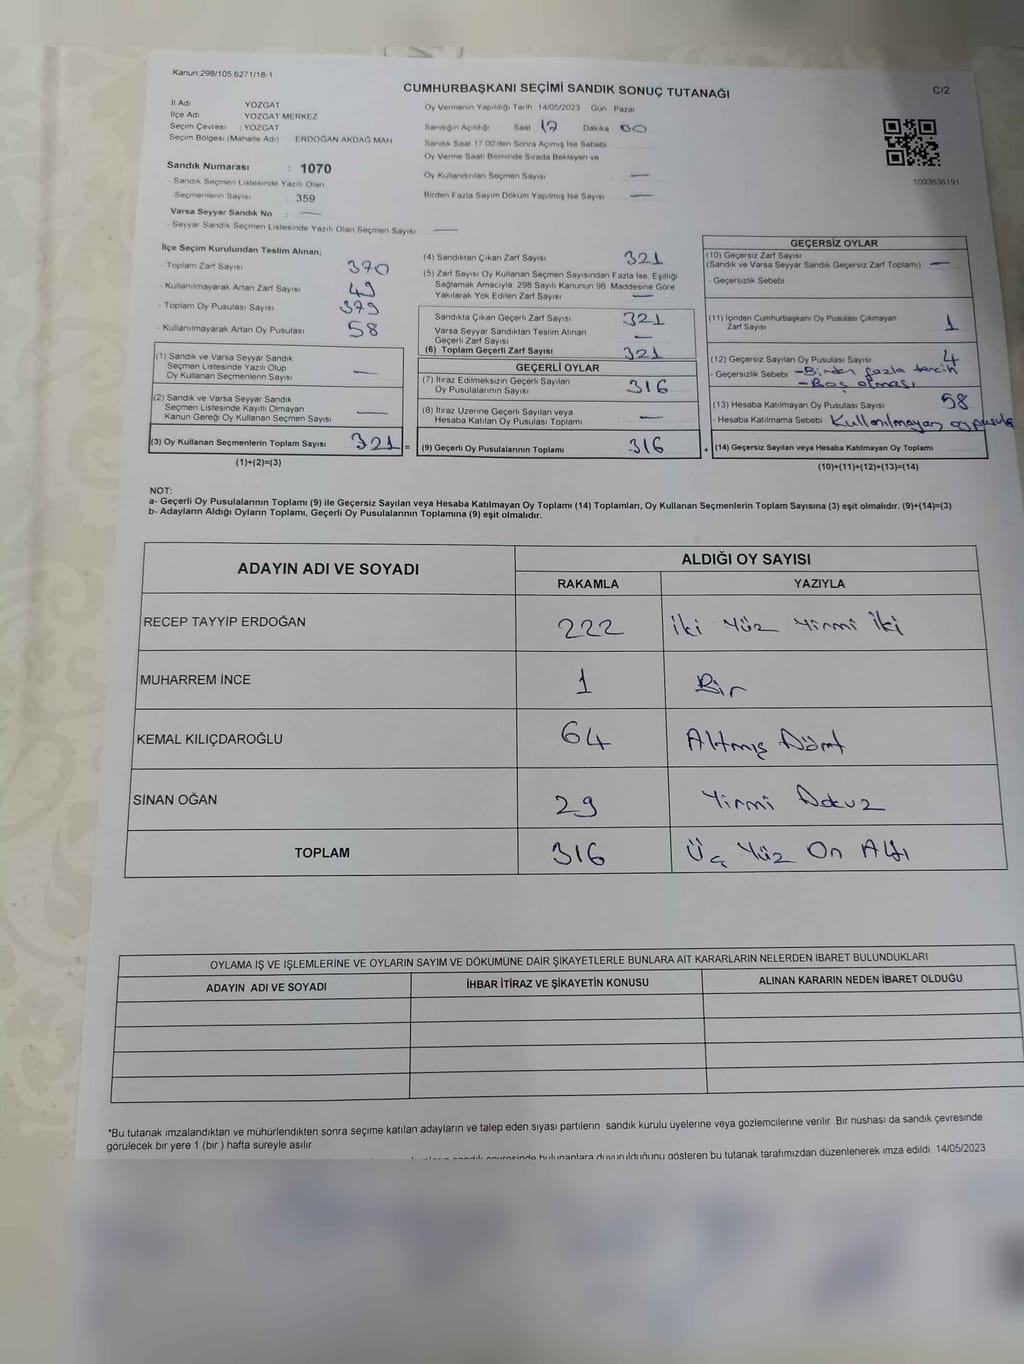 Kanun:298/105 6271/18-1
CUMHURBAŞKANI SEÇİMİ SANDIK SONUÇ TUTANAĞI
C/2
İl Adı YOZGAT
İlçe Adı YOZGAT MERKEZ
Seçim Çevresi : YOZGAT
Seçim Bölgesi (Mahalle Adı) ERDOĞAN AKDAĞ MAH
Sandık Numarası : 1070
- Sandık Seçmen Listesinde Yazılı Olan
Seçmenlerin Sayısı : 359
Varsa Seyyar Sandık No : —
- Seyyar Sandık Seçmen Listesinde Yazılı Olan Seçmen Sayısı —
Oy Vermenin Yapıldığı Tarih 14/05/2023 Gün Pazar
Sandığın Açıldığı Saat 17 Dakika 00
Sandık Saat 17 00'den Sonra Açımış İse Sebebi
Oy Verme Saati Bitiminde Sırada Bekleyen ve
Oy Kullandırılan Seçmen Sayısı —
Birden Fazla Sayım Döküm Yapılmış İse Sayısı —
1093636191
İlçe Seçim Kurulundan Teslim Alınan;
- Toplam Zarf Sayısı 370
- Kullanılmayarak Artan Zarf Sayısı 49
- Toplam Oy Pusulası Sayısı 379
- Kullanılmayarak Artan Oy Pusulası 58
(1) Sandık ve Varsa Seyyar Sandık
Seçmen Listesinde Yazılı Olup
Oy Kullanan Seçmenlerin Sayısı —
(2) Sandık ve Varsa Seyyar Sandık
Seçmen Listesinde Kayıtlı Olmayan
Kanun Gereği Oy Kullanan Seçmen Sayısı —
(3) Oy Kullanan Seçmenlerin Toplam Sayısı 321 =
(1)+(2)=(3)
(4) Sandıktan Çıkan Zarf Sayısı 321
(5) Zarf Sayısı Oy Kullanan Seçmen Sayısından Fazla İse, Eşitliği
Sağlamak Amacıyla, 298 Sayılı Kanunun 98. Maddesine Göre
Yakılarak Yok Edilen Zarf Sayısı —
Sandıkta Çıkan Geçerli Zarf Sayısı 321
Varsa Seyyar Sandıktan Teslim Alınan
Geçerli Zarf Sayısı —
(6) Toplam Geçerli Zarf Sayısı 321
GEÇERLİ OYLAR
(7) İtiraz Edilmeksizin Geçerli Sayılan
Oy Pusulalarının Sayısı 316
(8) İtiraz Üzerine Geçerli Sayılan veya
Hesaba Katılan Oy Pusulası Toplamı —
(9) Geçerli Oy Pusulalarının Toplamı 316 +
GEÇERSİZ OYLAR
(10) Geçersiz Zarf Sayısı
(Sandık ve Varsa Seyyar Sandık Geçersiz Zarf Toplamı) —
- Geçersizlik Sebebi
(11) İçinden Cumhurbaşkanı Oy Pusulası Çıkmayan
Zarf Sayısı 1
(12) Geçersiz Sayılan Oy Pusulası Sayısı 4
- Geçersizlik Sebebi -Birden fazla tercih
-Boş olması
(13) Hesaba Katılmayan Oy Pusulası Sayısı 58
- Hesaba Katılmama Sebebi Kullanılmayan oy pusula
(14) Geçersiz Sayılan veya Hesaba Katılmayan Oy Toplamı
(10)+(11)+(12)+(13)=(14)
NOT:
a- Geçerli Oy Pusulalarının Toplamı (9) ile Geçersiz Sayılan veya Hesaba Katılmayan Oy Toplamı (14) Toplamları, Oy Kullanan Seçmenlerin Toplam Sayısına (3) eşit olmalıdır. (9)+(14)=(3)
b- Adayların Aldığı Oyların Toplamı, Geçerli Oy Pusulalarının Toplamına (9) eşit olmalıdır.
ADAYIN ADI VE SOYADI ALDIĞI OY SAYISI
RAKAMLA YAZIYLA
RECEP TAYYİP ERDOĞAN 222 İki Yüz Yirmi İki
MUHARREM İNCE 1 Bir
KEMAL KILIÇDAROĞLU 64 Altmış Dört
SİNAN OĞAN 29 Yirmi Dokuz
TOPLAM 316 Üç Yüz On Altı
OYLAMA İŞ VE İŞLEMLERİNE VE OYLARIN SAYIM VE DÖKÜMÜNE DAİR ŞİKAYETLERLE BUNLARA AİT KARARLARIN NELERDEN İBARET BULUNDUKLARI
ADAYIN ADI VE SOYADI İHBAR İTİRAZ VE ŞİKAYETİN KONUSU ALINAN KARARIN NEDEN İBARET OLDUĞU
*Bu tutanak imzalandıktan ve mühürlendikten sonra seçime katılan adayların ve talep eden siyasi partilerin sandık kurulu üyelerine veya gözlemcilerine verilir. Bir nüshası da sandık çevresinde
görülecek bir yere 1 (bir ) hafta süreyle asılır.
bulunanlara duyurulduğunu gösteren bu tutanak tarafımızdan düzenlenerek imza edildi. 14/05/2023